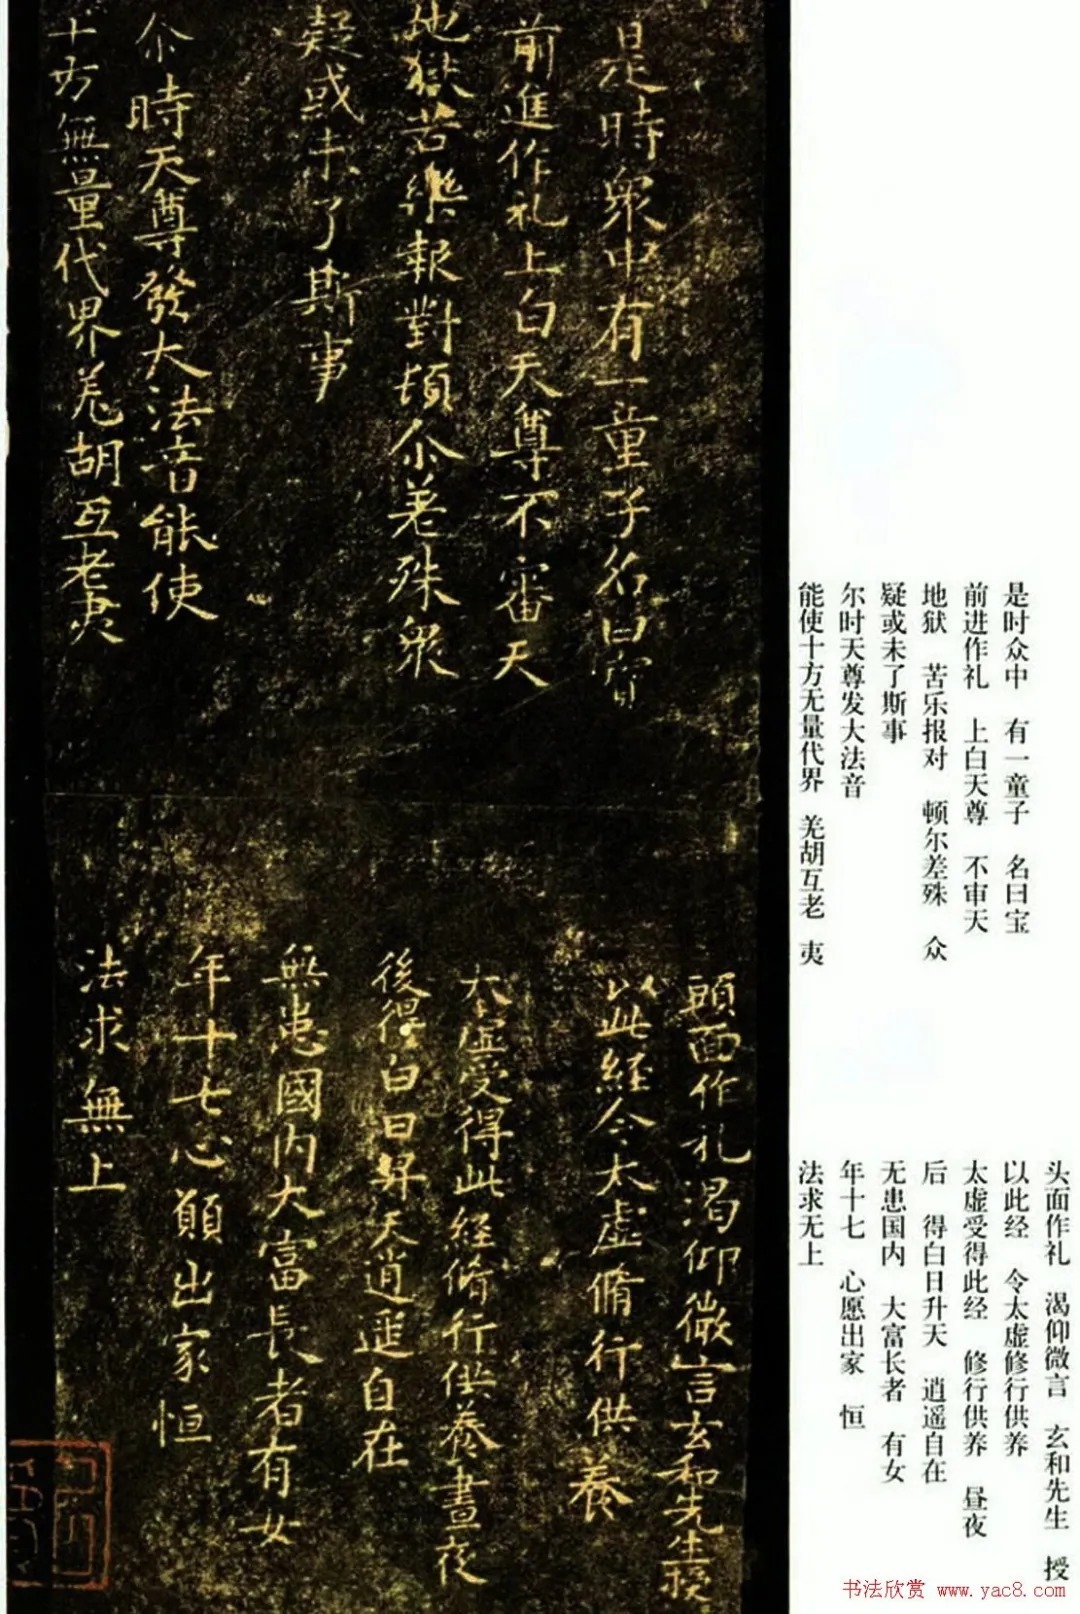 是時衆中有一童子名曰寳
前進作礼上白天尊不審天
地獄苦樂報對頓尒差殊衆
疑或未了斯事
尒時天尊發大法音能使
十方無量代界羌胡互老夷
頭面作礼渴仰微言玄和先生授
以此經令太虛脩行供養
太虛受得此經脩行供養晝夜
後得白日昇天逍遥自在
無患國内大富長者有女
年十七心願出家恒
法求無上
是时众中 有一童子 名曰宝
前进作礼 上白天尊 不审天
地狱 苦乐报对 顿尔差殊 众
疑或未了斯事
尔时天尊发大法音
能使十方无量代界 羌胡互老 夷
头面作礼 渴仰微言 玄和先生 授
以此经 令太虚修行供养
太虚受得此经 修行供养 昼夜
后 得白日升天 逍遥自在
无患国内 大富长者 有女
年十七 心愿出家 恒
法求无上
书法欣赏 www.yac8.com